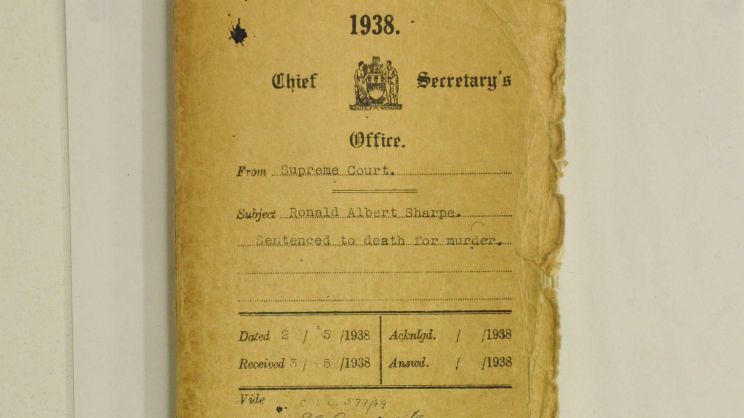 1938.
Chief Secretary's
Office.
From Supreme Court.
Subject Ronald Albert Sharpe.
Sentenced to death for murder.
Dated 2 / 5 /1938 Acknlgd. / /1938
Received 3 / 5 /1938 Answd. / /1938
Vide C.S.O. 577/49